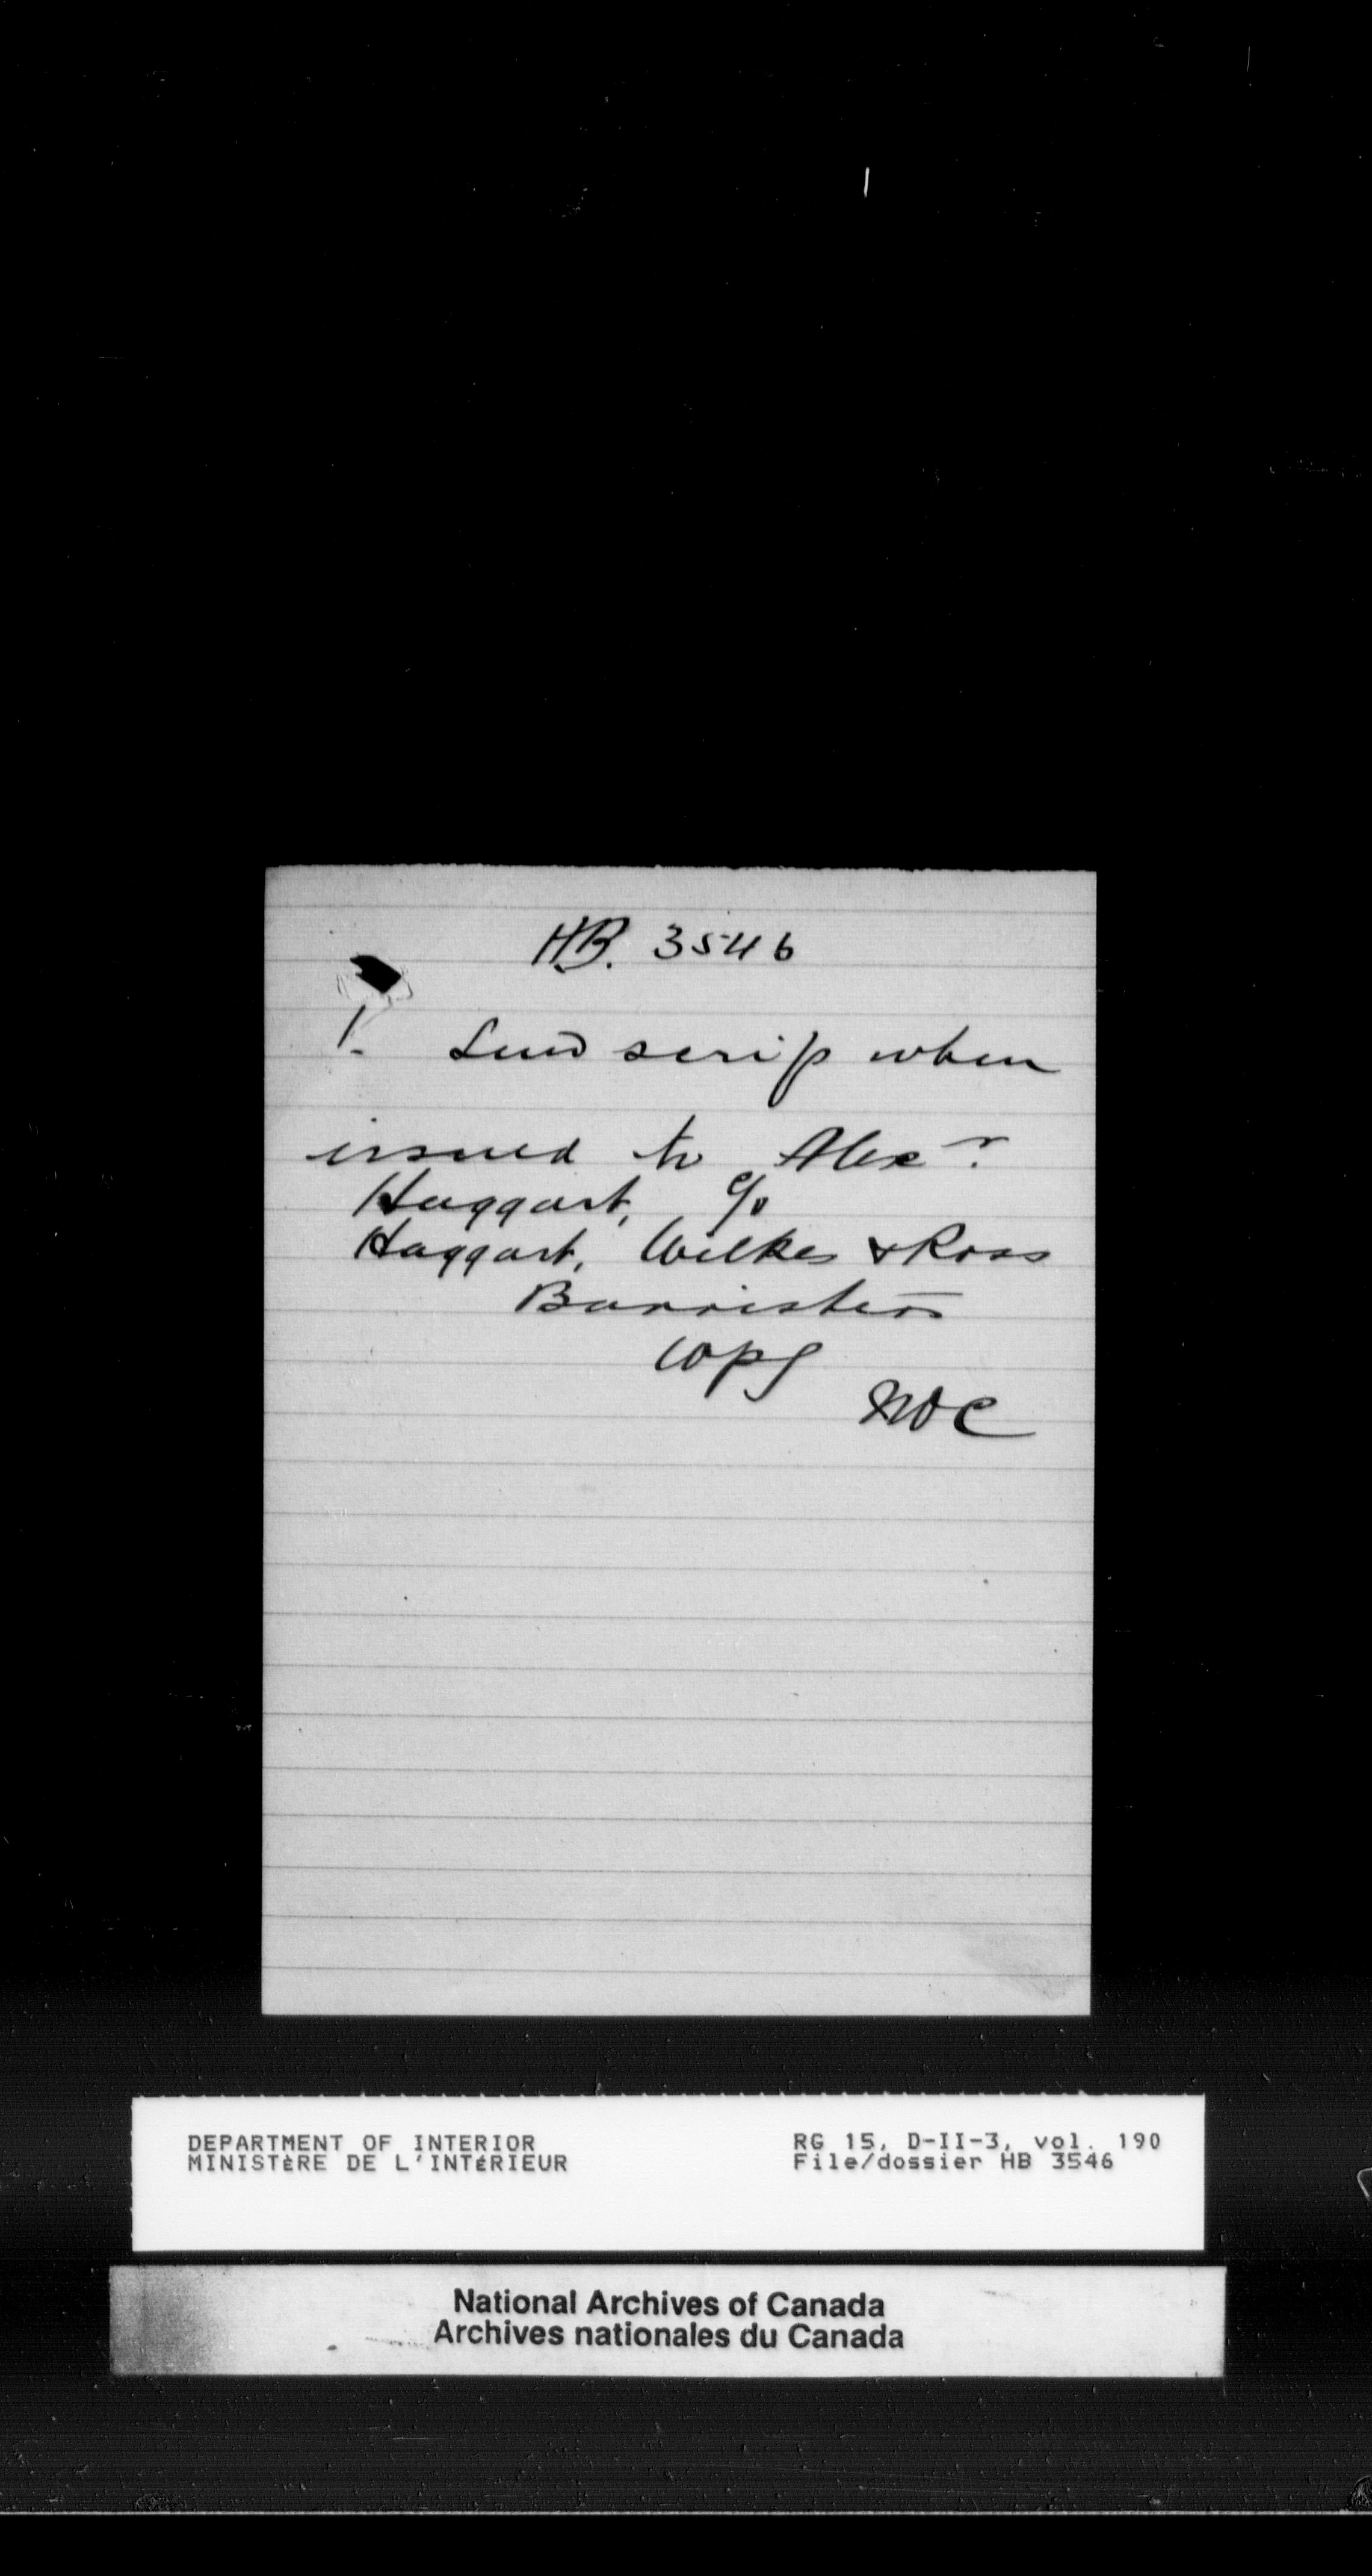 H.B. 3546
1. Send scrip when
issued to Alexr.
Haggart, c/o
Haggart, Wilkes & Ross
Barristers
Wpg
NOC
DEPARTMENT OF INTERIOR
MINISTÈRE DE L'INTÉRIEUR
RG 15, D-II-3, vol. 190
File/dossier HB 3546
National Archives of Canada
Archives nationales du Canada